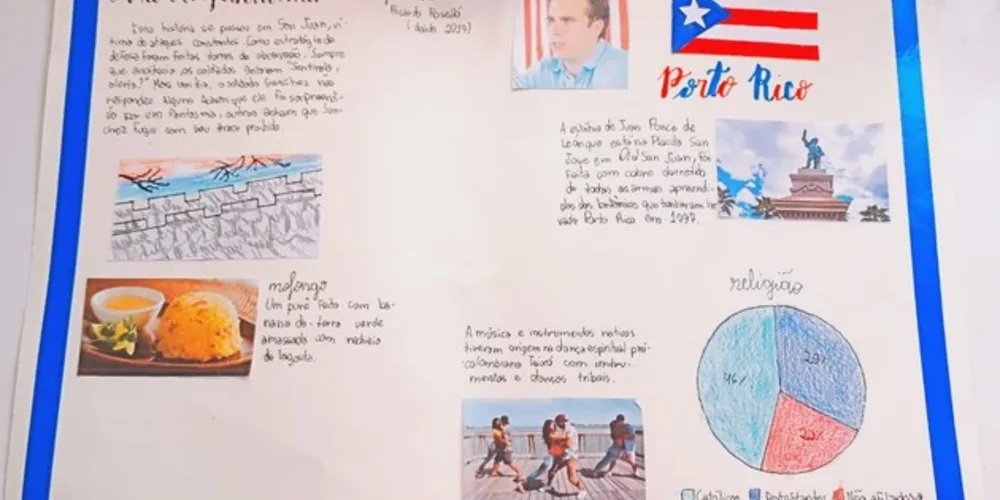 Essa história se passou em San Juan, ví-
tima de ataques constantes. Como estratégia de
defesa foram feitas torres de observação. Sempre
que anoitecia os soldados gritavam "Sentinela,
alerta!" Mas um dia, o soldado Sanchez não
respondeu. Alguns acham que ele foi surpreendi-
do por um fantasma, outros acham que San-
chez fugiu com seu amor proibido.
Ricardo Rosselló
(desde 2019)
Porto Rico
A estátua de Juan Ponce de
León que está na Placita San
Jose em Old San Juan, foi
feita com cobre derretido
de todas as armas apreendi-
das dos britânicos que tentaram in
vadir Porto Rico em 1797.
mofongo
Um purê feito com ba-
nana-da-terra verde
amassada com recheio
de lagosta.
A música e instrumentos nativos
tiveram origem na dança espiritual pré-
colombiana Taíná com instru-
mentos e danças tribais.
religião
46%
22%
Católicos Protestantes Não afiliados